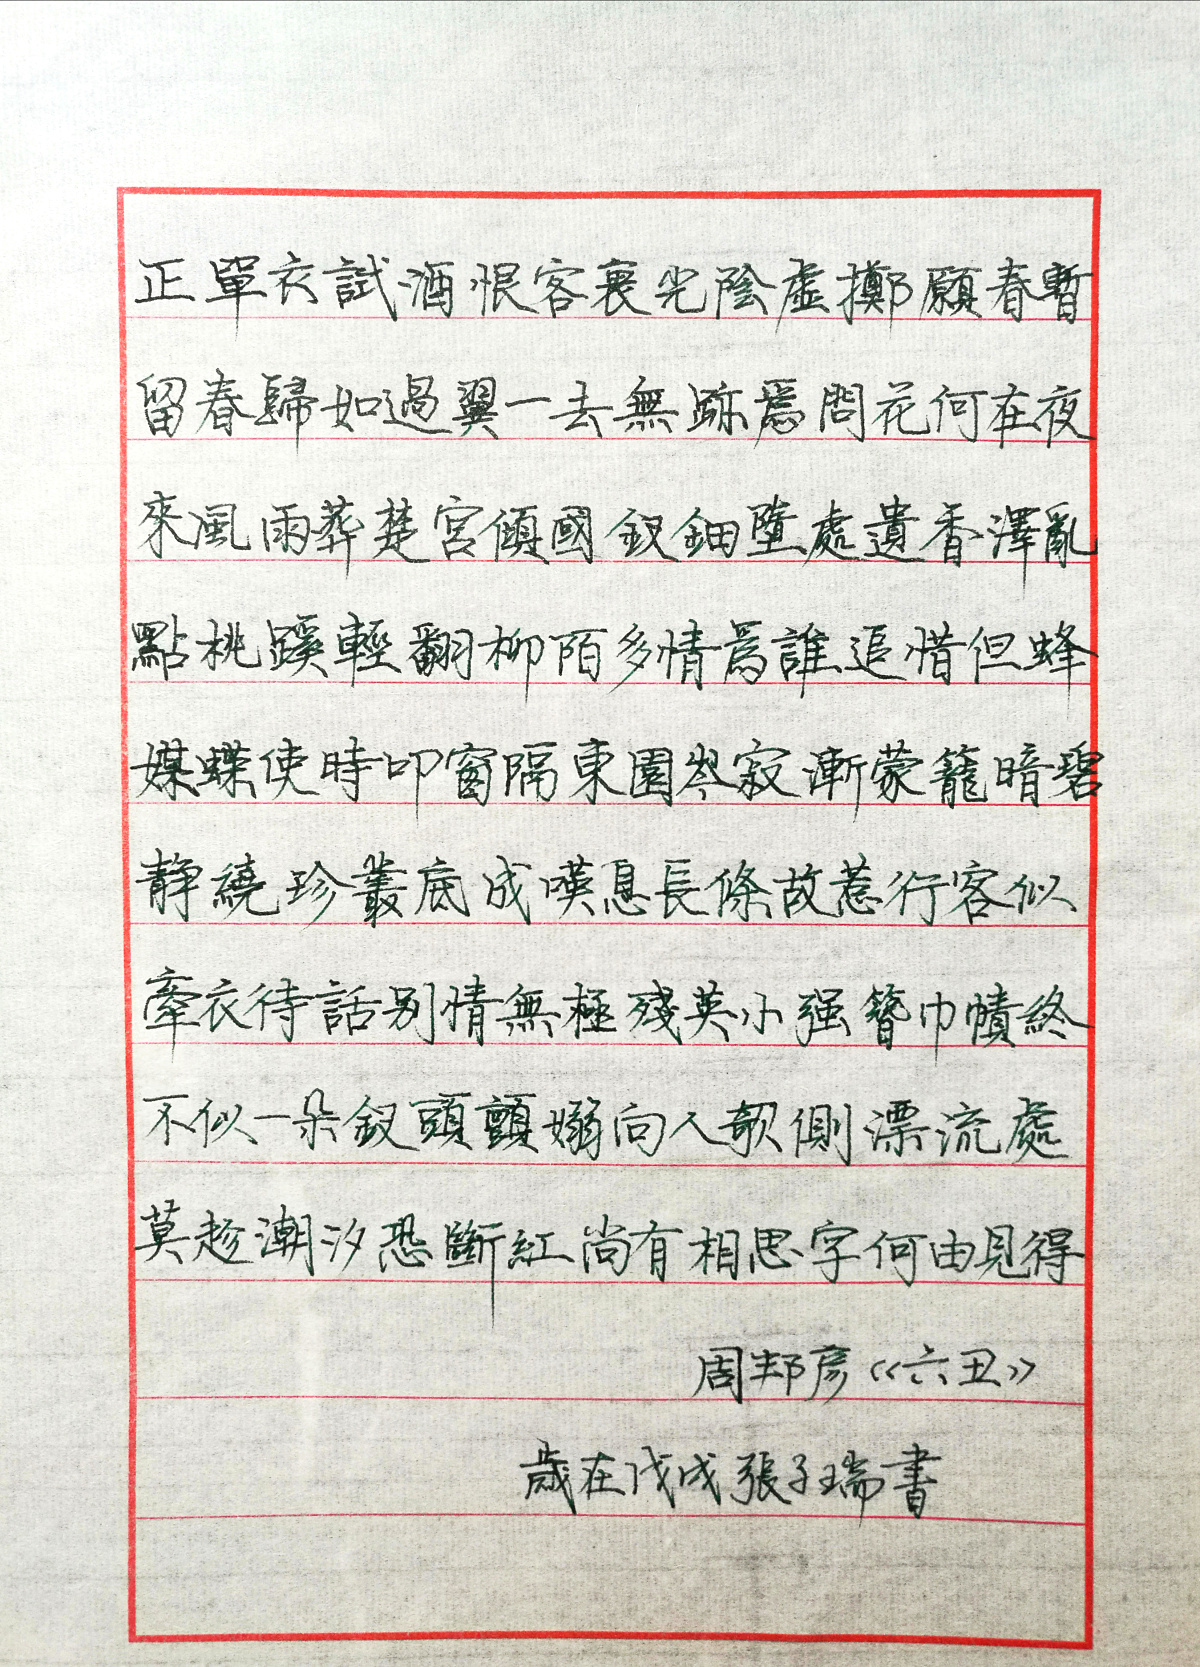 正單衣試酒恨客裏光陰虛擲願春暫
留春歸如過翼一去無跡爲問花何在夜
來風雨葬楚宮傾國釵鈿墮處遺香澤亂
點桃蹊輕翻柳陌多情爲誰追惜但蜂
媒蝶使時叩窗隔東園岑寂漸蒙籠暗碧
靜繞珍叢底成嘆息長條故惹行客似
牽衣待話别情無極殘英小强簪巾幘終
不似一朵釵頭顫嫋向人欹側漂流處
莫趁潮汐恐斷紅尚有相思字何由見得
周邦彦《六丑》
歲在戊戌張子瑞書